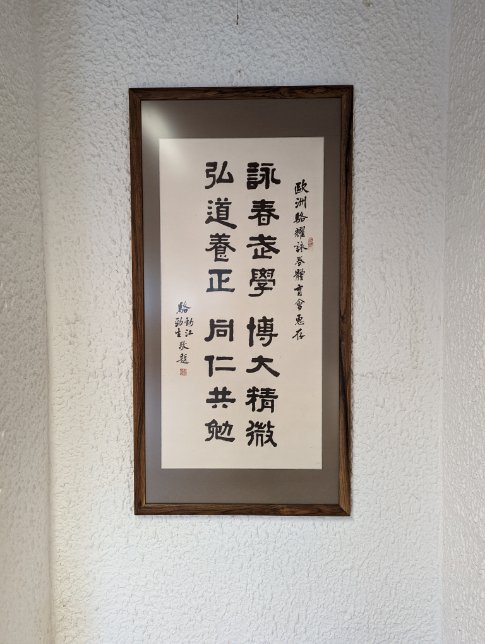 歐洲駱耀詠春體育會惠存
詠春武學 博大精微
弘道養正 同仁共勉
駱勁江敬題